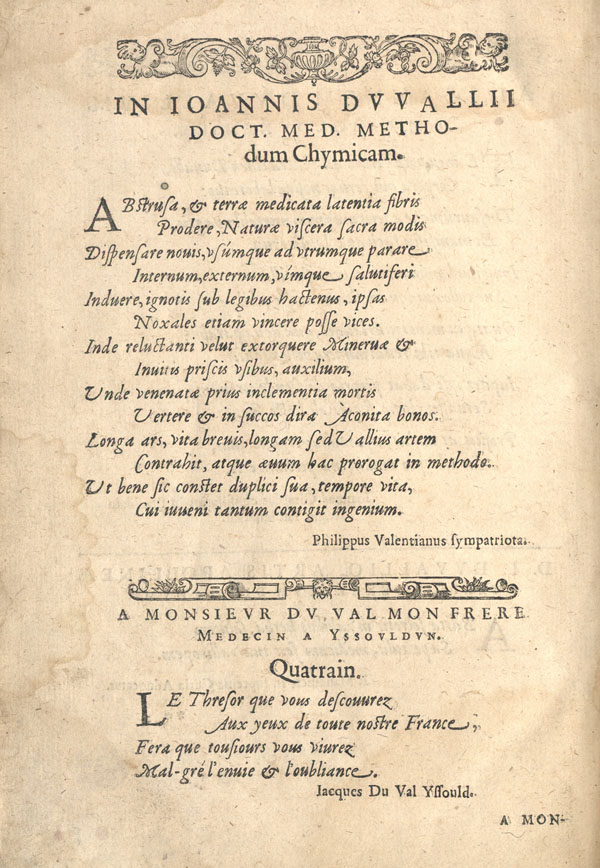 IN IOANNIS DVVALLII
DOCT. MED. METHO-
dum Chymicam.
ABstrusa, & terræ medicata latentia fibris
Prodere, Naturæ viscera sacra modis
Dispensare nouis, vsúmque ad vtrumque parare
Internum, externum, vímque salutiferi
Induere, ignotis sub legibus hactenus, ipsas
Noxales etiam vincere posse vices.
Inde reluctanti velut extorquere Mineruæ &
Inuitis priscis vsibus, auxilium,
Vnde venenatæ prius inclementia mortis
Vertere & in succos dira Aconita bonos.
Longa ars, vita breuis, longam sed Vallius artem
Contrahit, atque æuum hac prorogat in methodo.
Vt bene sic constet duplici sua, tempore vita,
Cui iuueni tantum contigit ingenium.
Philippus Valentianus sympatriota.
A MONSIEVR DV VAL MON FRERE
MEDECIN A YSSOVLDVN.
Quatrain.
LE Thresor que vous descouurez
Aux yeux de toute nostre France,
Fera que tousiours vous viurez
Mal-gré l'enuie & l'oubliance.
Iacques Du Val Yssould.
A MON-